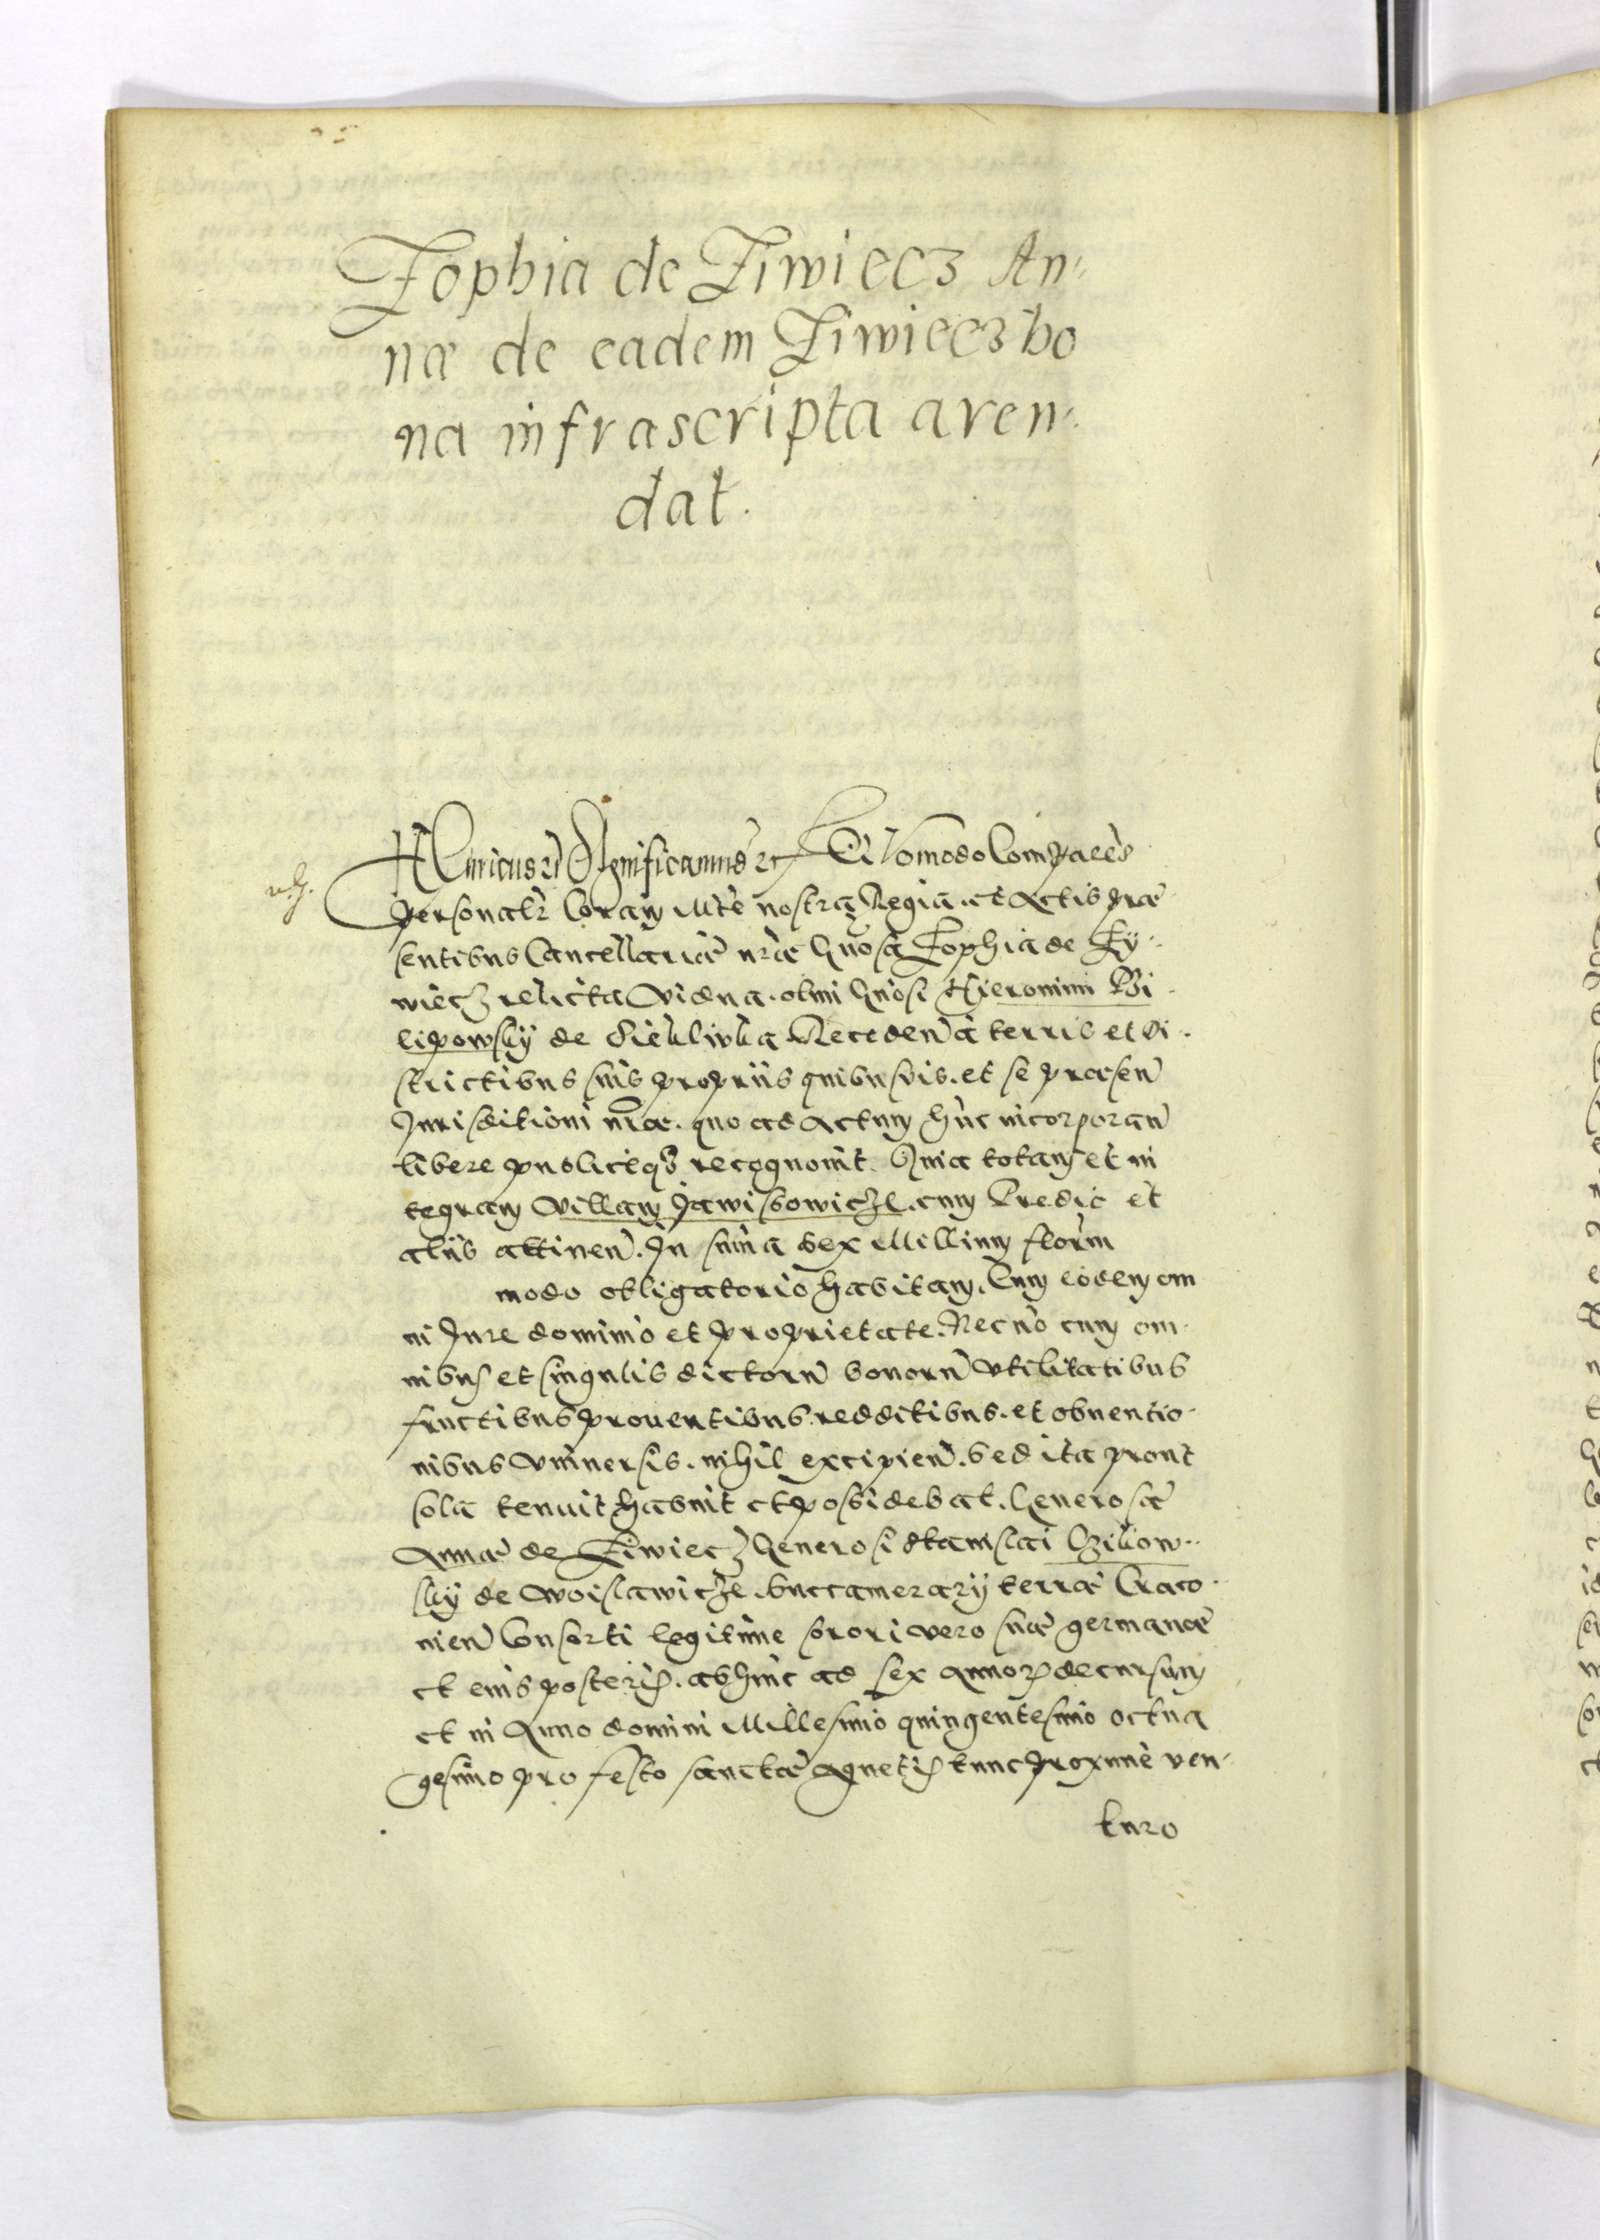 Zophia de Ziwiecz An-
næ de eadem Ziwiecz bo
na infrascripta aren-
dat.
Henricus etc Significamus etc Quomodo Comparēs
personalr̃ Coram Mtē nostra Regia et Actis præ
sentibus Cancellariæ nr̃æ Gnosa Zophia de Zy-
wiecz relicta Vidua olim Gnosi Hieronimi Fi
lipowsky de Recedeñ a terris et di-
strictibus suis propriis quibusvis et se præseñ
Jurisditioni nr̃æ quo ad Actum hunc incorporañ
libere publiceqȝ recognovit. Quia totam et in
tegram Villam Jawissowicze cum Predio et
aliis attineñ. In suma Sex Millium floreñ
modo obligatorio habitam. Cum eodem om
ni Jure dominio et proprietate. Necnō cum om-
nibus et singulis dictorũ bonorũ utilitatibus
fructibus proventibus redditibus et obventio-
nibus Universis nihil excipieñ. Sed ita prout
sola tenuit habuit et possidebat. Generosæ
Annæ de Ziwiecz Generosi Stanislai Czikow-
sky de Woislawicze Succamerarij terræ Craco-
vieñ Consorti legitime sorori vero suæ germanæ
et eius posteris abhinc ad sex annorꝫ decursum
et in Anno domini Millesimo quingentesimo octua
gesimo pro festo sanctæ Agnetis tunc proxime ven-
turo